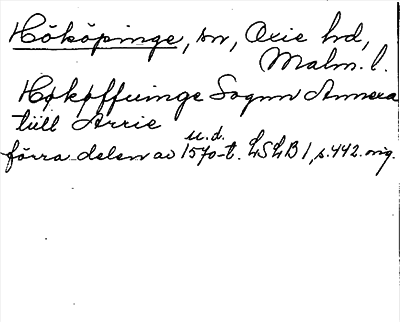 Hököpinge, sn, Oxie hd,
Malm. l.
Høkøffuinge Sognn Annexa
tiill Arrie
u.d.
förra delen av 1570-t. LSLB 1, s. 442. orig.